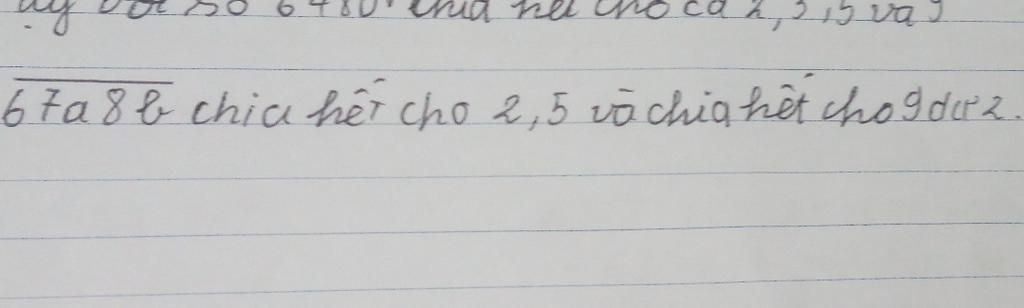 số 6480 chia hết cho cả 2, 3, 5 và 9
67a8b chia hết cho 2, 5 và chia hết cho 9 dư 2.